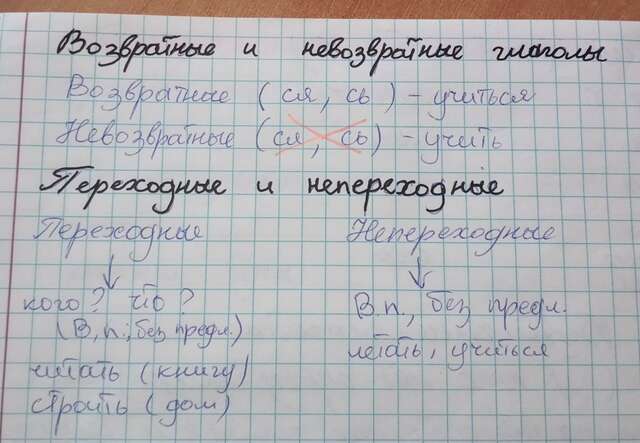 Возвратные и невозвратные глаголы
Возвратные (ся, сь) - учиться
Невозвратные (ся, сь) - учить
Переходные и непереходные
Переходные Непереходные
кого? что? В.п., без предл.
(В.п., без предл.) летать, учиться
читать (книгу)
строить (дом)